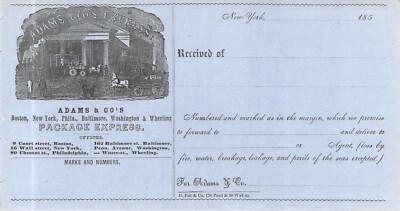 ADAMS & CO'S EXPRESS.
ADAMS & CO'S
Boston, New York, Phila., Baltimore, Washington & Wheeling
PACKAGE EXPRESS.
OFFICES.
9 Court street, Boston,
16 Wall street, New York,
80 Chesnut st., Philadelphia,
162 Baltimore st. Baltimore,
Penn. Avenue, Washington,
— Water-st., Wheeling.
MARKS AND NUMBERS.
New York, 185
Received of
Numbered and marked as in the margin, which we promise
to forward to and deliver to
or Agent, (loss by
fire, water, breakage, leakage, and perils of the seas excepted.)
For Adams & Co.
& Co. 178 Pearl & 80 Wall st.